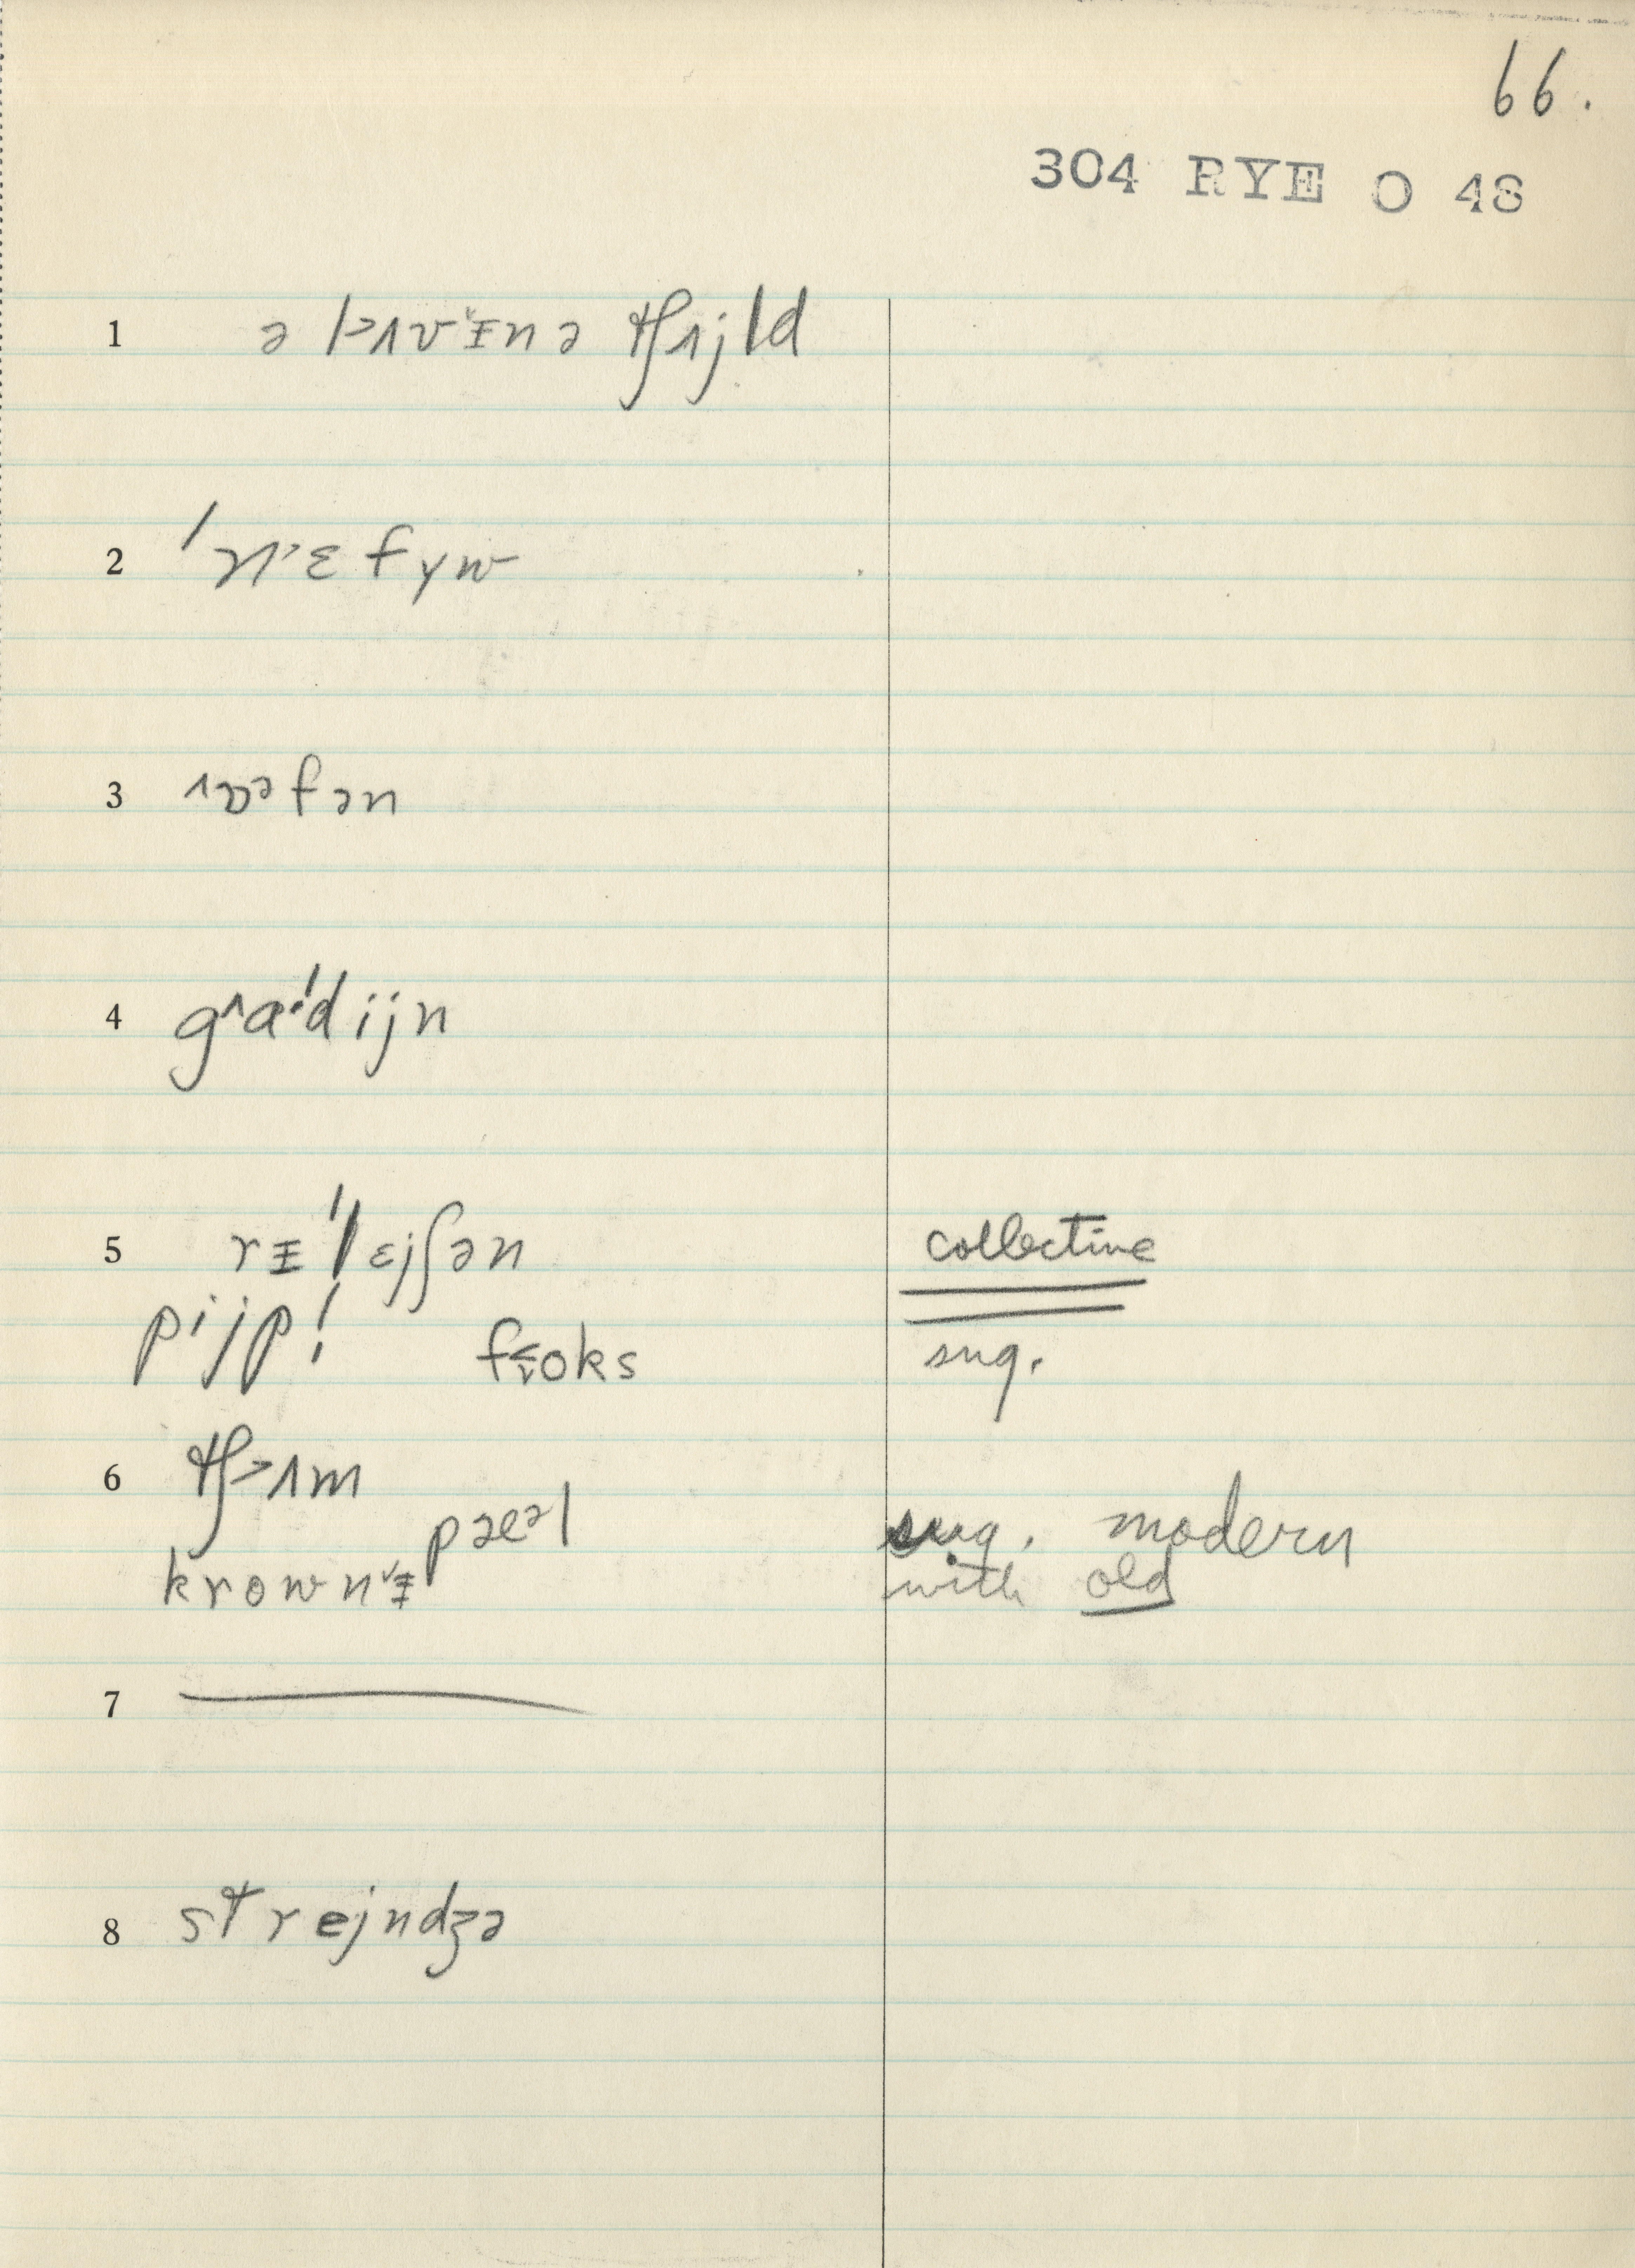 66.
304 RYE O 48
1 ə lʌvᵻn ə tʃʌjld
2 ˈnɛfyw
3 ɒəfən
4 gaˈdijn
5 rᵻˈlɛjʃən collective
pijp! foks sug.
6 tʃʌm
pæəl sug. modern
krownᵻ with old
7
8 strejndʒə